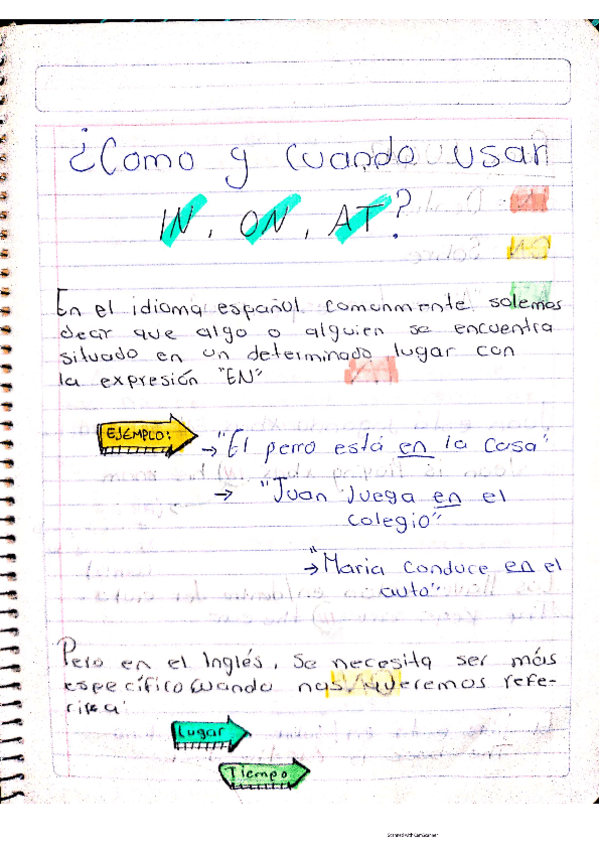 ¿Como y cuando usar
IN, ON, AT?
En el idioma español comunmente solemos
decir que algo o alguien se encuentra
situado en un determinado lugar con
la expresión "EN"
EJÉMPLO:
→"El perro está en la casa"
→ "Juan Juega en el
colegio"
→"Maria conduce en el
auto"
Pero en el Inglés, se necesita ser más
específico cuando nos queremos refe-
rir a:
Lugar
Tiempo
Scanned with CamScanner